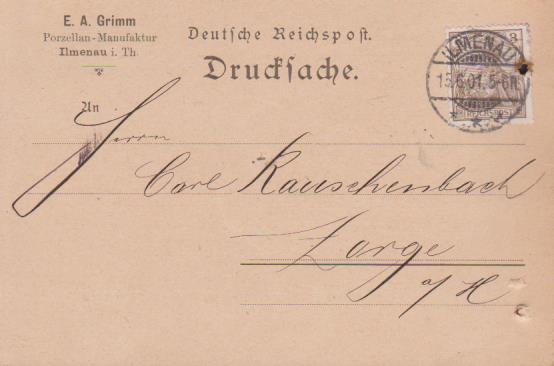 E. A. Grimm
Porzellan-Manufaktur
Ilmenau i. Th.
Deutsche Reichspost.
Drucksache.
3
ILMENAU
15.6.01. 5-6N.
REICHSPOST
An
Herrn
Carl Rauschenbach
Zorge
a/H